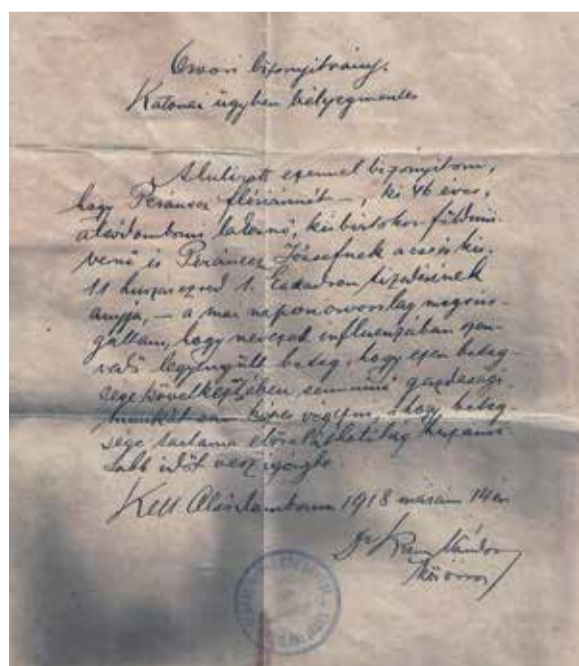 Orvosi bizonyítvány.
Katonai ügyben bélyegmentes
Alulirott ezennel bizonyitom,
hogy Peráncz Flóriánnét –, ki 46 éves,
alsódomborui lakosnő, kisbirtokos földmi-
vesnő és Peráncz Józsefnek a cs. és kir.
11 huszárezred 1. Eskadron tizedesének
anyja, – a mai napon orvosilag megvizs-
gáltam, hogy nevezett influenzában szen-
vedő legyengült beteg, hogy ezen beteg-
sége következtében semminő gazdasági
munkát sem képes végezni, s hogy beteg-
sége tartama előreláthatólag huzamo-
sabb időt vesz igénybe.
Kelt Alsódomborun 1918 március 14 én
Dr Sándor
körorvos